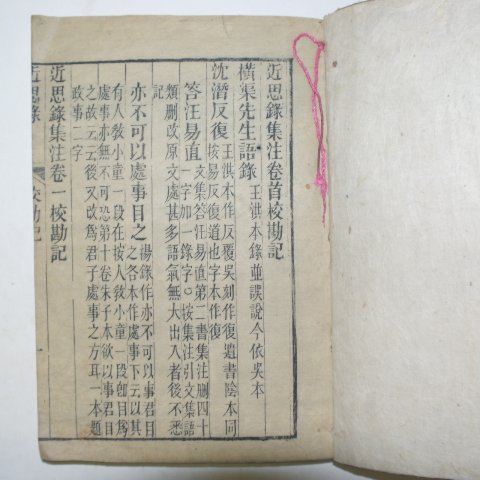 近思錄集注卷首校勘記
橫渠先生語錄 王洪本錄並誤說今依吳本
沈潛反復 王洪本作反覆吳刻作復遺書陰本同
按易反復道也字本作復
答汪易直 文集答汪易直第二書集注刪四十
一字加一錄字○按集注引文集語
類刪改原文處甚多語氣無大出入者後不悉
記
亦不可以處事目之 楊錄作亦不可以事君目
之各本作處事下云以其
有人敎小童一段在按人敎小童一段卽目爲
處事亦無不可恐第十卷朱子本欲以事君目
之故云云後又改爲君子處事之方耳一本題
政事二字
近思錄集注卷一校勘記
近思錄 校勘記 一